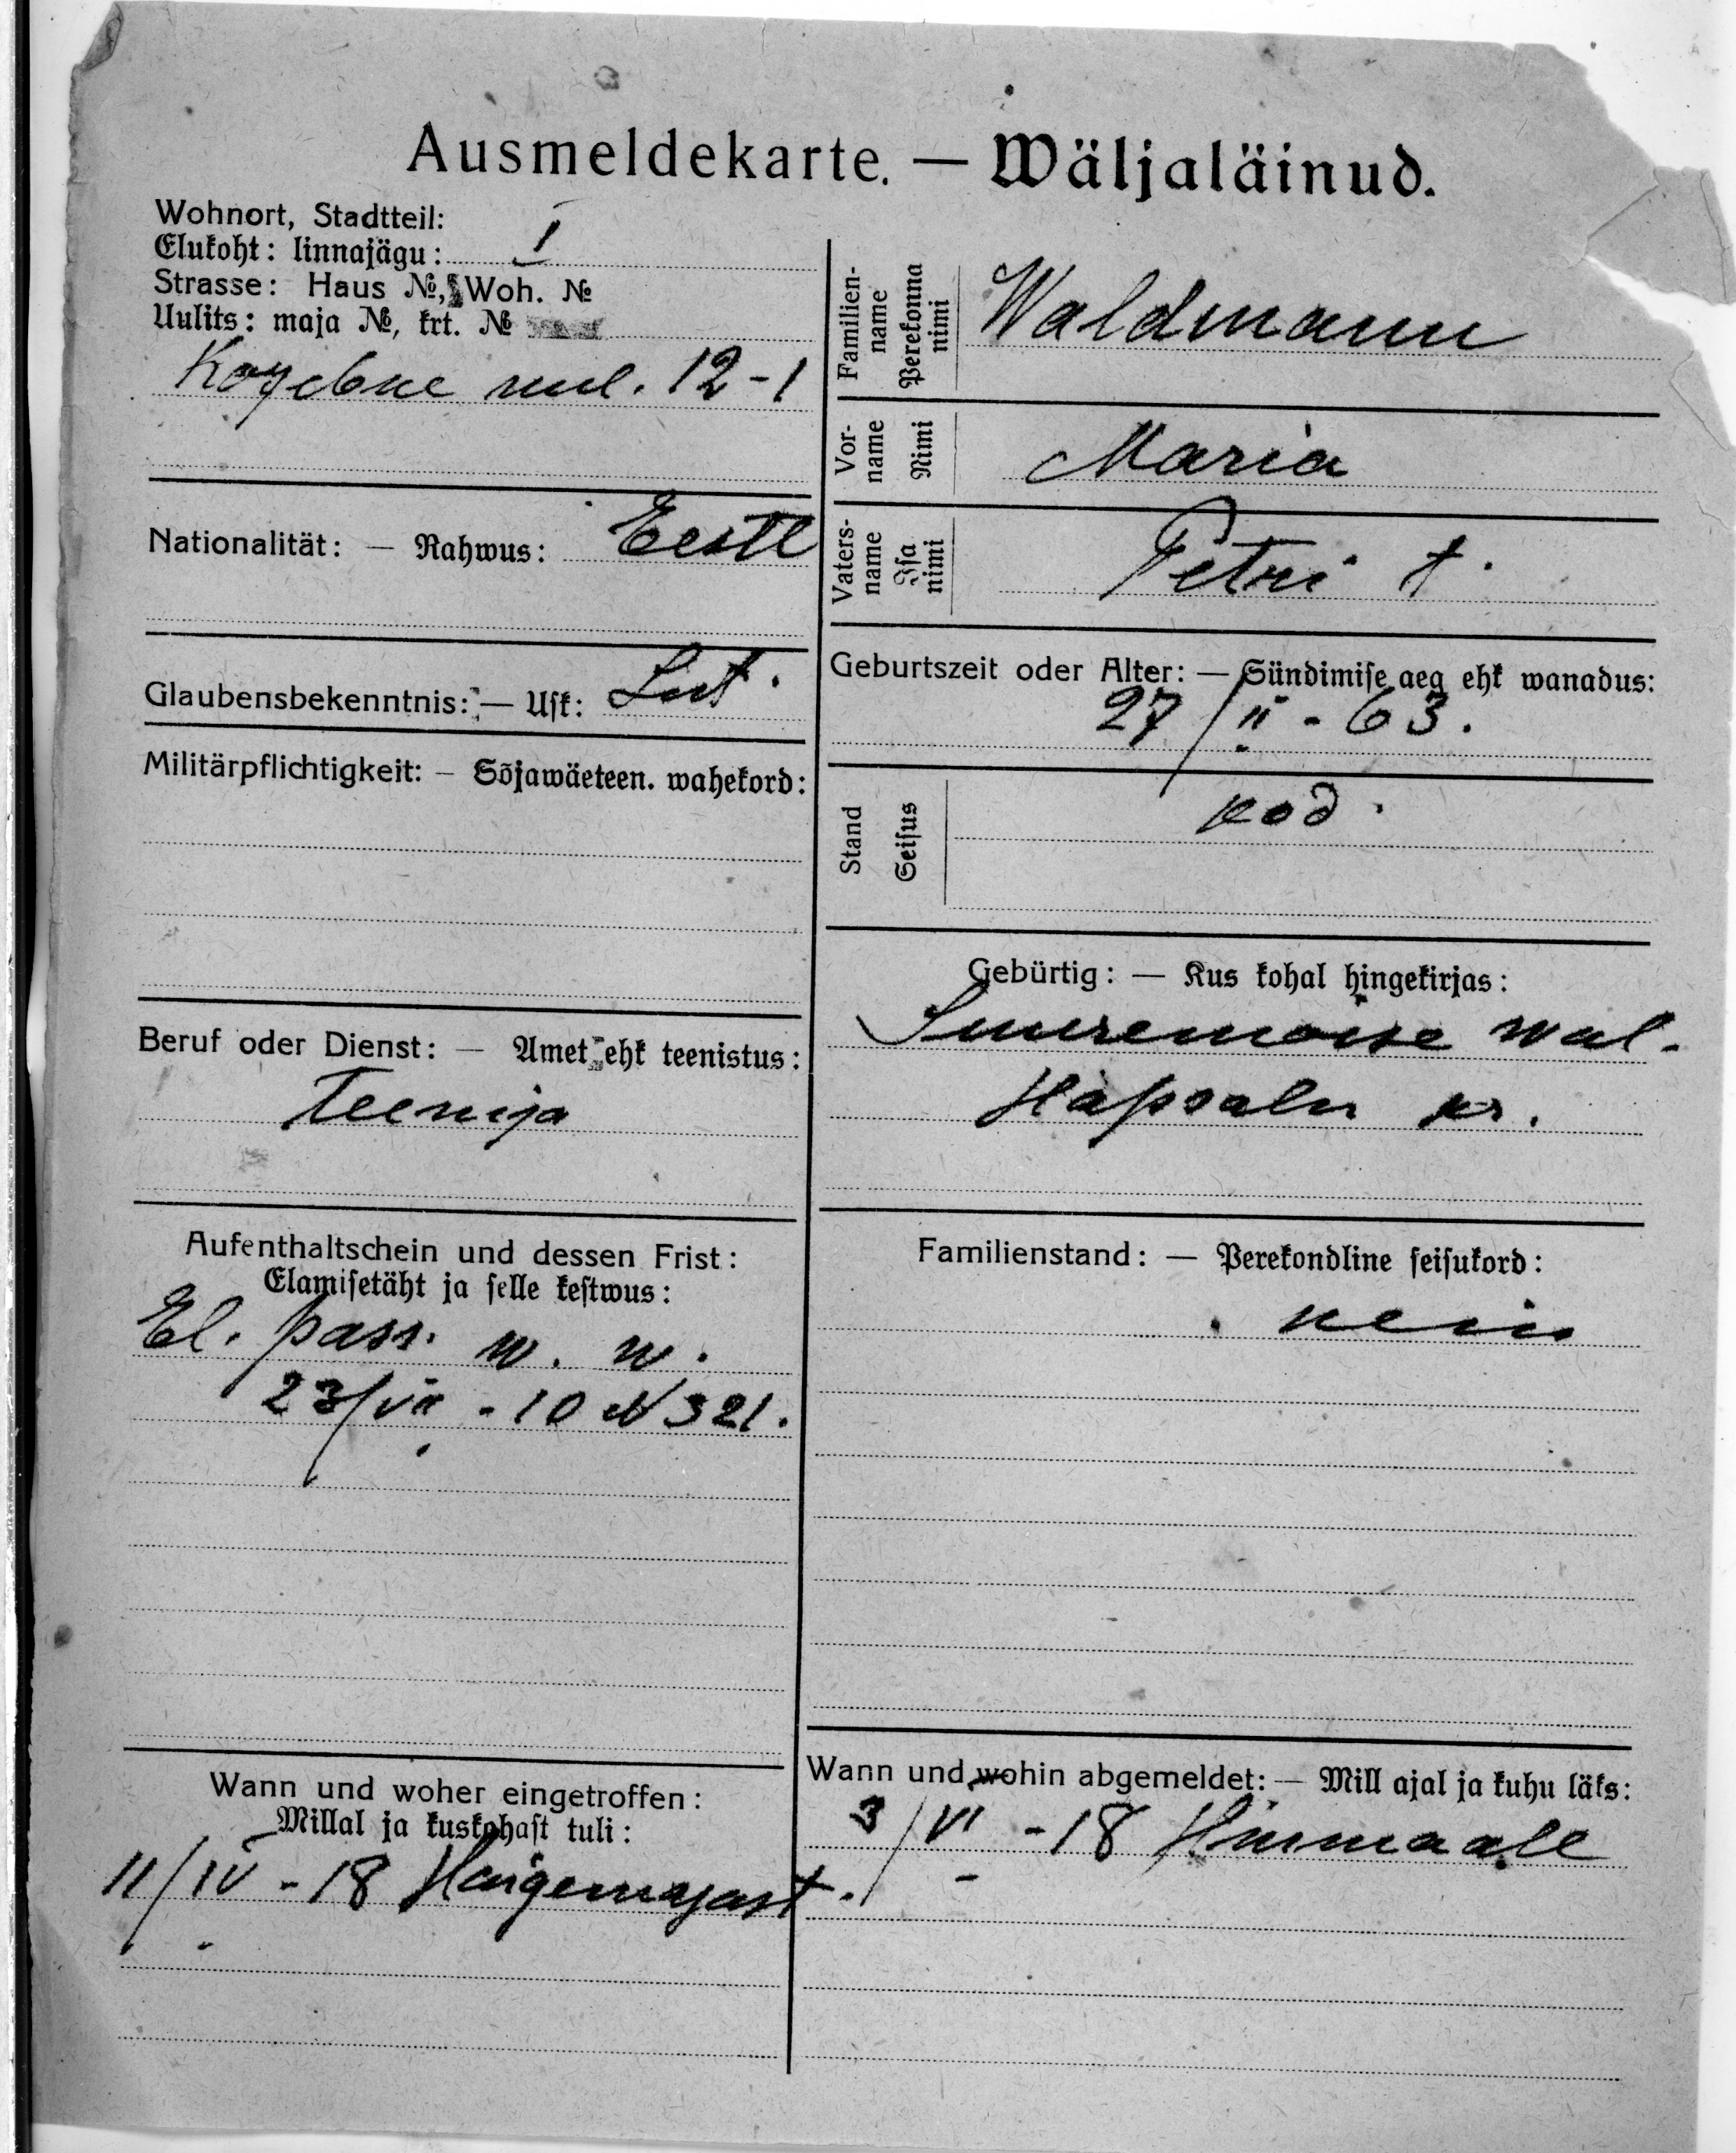 Ausmeldekarte. — Wäljaläinud.
Wohnort, Stadtteil:
Elukoht: linnajägu: I
Strasse: Haus №, Woh. №
Uulits: maja №, krt. №
Kozebue uul. 12-1
Nationalität: — Rahwus: Eestl
Glaubensbekenntnis: — Usk: Lut.
Militärpflichtigkeit: — Sõjawäeteen. wahekord:
Beruf oder Dienst: — Amet ehk teenistus:
Teenija
Aufenthaltschein und dessen Frist:
Elamisetäht ja selle kestwus:
El. pass. w. w.
23/VII - 10 N 321.
Wann und woher eingetroffen:
Millal ja kuskohast tuli:
11/IV - 18 Haigemajast.
Familien-
name
Perekonna
nimi
Waldmann
Vor-
name
Nimi
Maria
Vaters-
name
Isa
nimi
Petri t.
Geburtszeit oder Alter: — Sündimise aeg ehk wanadus:
27/II - 63.
Stand
Seisus
kod.
Gebürtig: — Kus kohal hingekirjas:
Suuremoise wal.
Hapsalu kr.
Familienstand: — Perekondline seisukord:
neiu
Wann und wohin abgemeldet: — Mill ajal ja kuhu läks:
3/VI - 18 Hiiumaale